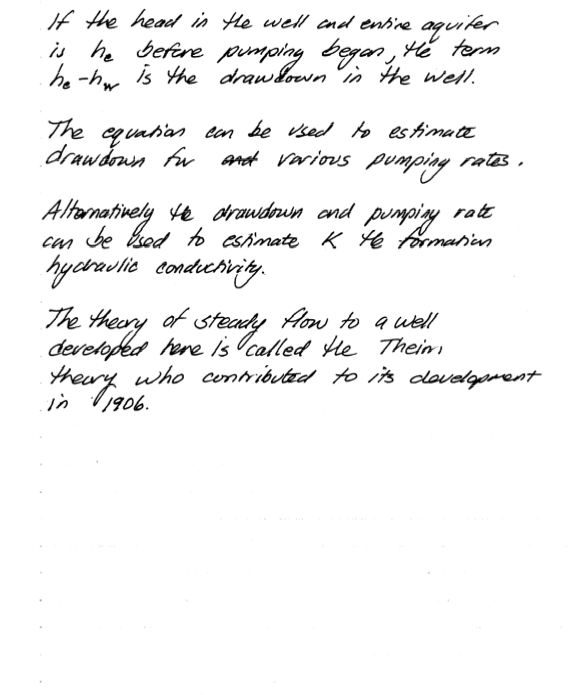 If the head in the well and entire aquifer
is he before pumping began, the term
he - hw is the drawdown in the well.
The equation can be used to estimate
drawdown for various pumping rates.
Alternatively the drawdown and pumping rate
can be used to estimate K the formation
hydraulic conductivity.
The theory of steady flow to a well
developed here is called the Theim
theory who contributed to its development
in 1906.